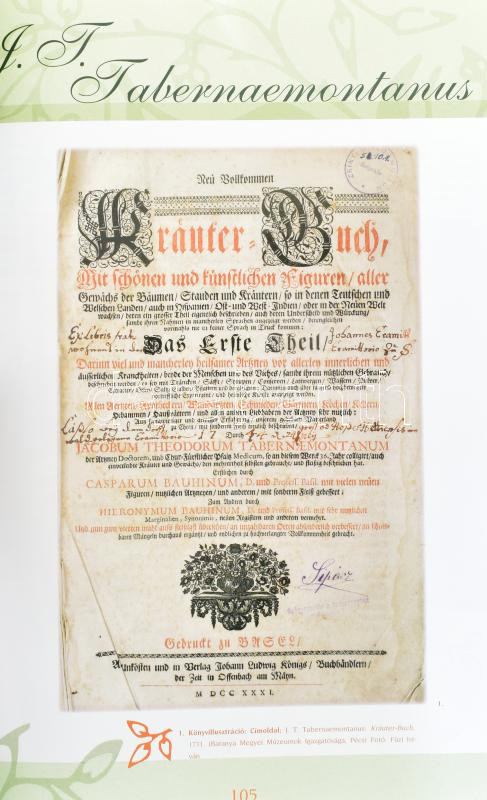 J. T.
Tabernaemontanus
Neü Vollkommen
Kräuter-Buch,
Mit schönen und künstlichen Figuren/ aller
Gewächs der Bäumen/ Stauden und Kräutern/ so in denen Teutschen und
Welschen Landen/ auch in Hispanien/ Ost- und West-Indien/ oder in der Neüen Welt
wachsen/ deren ein grosser Theil eigentlich beschrieben/ auch deren Underscheid und Würckung/
sambt ihren Nahmen in mancherley Sprachen angezeigt werden/ dergleichen
vormahls nie in keiner Sprach in Truck kommen:
Ex Libris
Johannes
Das Erste Theil/
Darinn viel und mancherley heilsamer Artzney vor allerley innerlichen und
äusserlichen Kranckheiten/ beyde der Menschen und des Viehes/ sambt ihrem nützlichen Gebrauch/
beschrieben werden/
Allen Aertzten/ Apotheckern/ Wundärtzten/ Schmieden/ Gärtnern/ Köchen/ Kellern/
Hebammen/ Haußvättern/ und allen andern Liebhabern der Artzney sehr nutzlich:
Durch
JACOBUM THEODORUM TABERNÆMONTANUM
der Artzney Doctorem, und Chur-Fürstlicher Pfaltz Medicum, so an diesem Werck 36. Jahr colligirt/ auch
eintzelnde Kräuter und Gewächs/ den mehrentheil selbsten gebraucht/ und fleißig beschrieben hat.
Erstlichen durch
CASPARUM BAUHINUM, D. und Profess. Basil. mit vielen neüen
Figuren/ nutzlichen Artzneyen/ und anderem/ mit sonderm Fleiß gebessert;
Zum Andern durch
HIERONYMUM BAUHINUM, D. und Profess. Basil. mit sehr nutzlichen
Marginalien, Synonimis, neüen Registern und anderem vermehrt.
Und nun zum vierten mahl auffs fleissigst übersehen/ an unzahlbaren Orten absonderlich verbessert/ an schein-
baren Mängeln durchaus ergäntzt/ und endlichen zu hochverlangter Vollkommenheit gebracht.
Gedruckt zu BASEL/
In Verlag Johann Ludwig Königs/ Buchhändlern/
der Zeit in Offenbach am Mäyn.
M DCC XXXI.
1.
1. Könyvillusztráció: Címoldal: J. T. Tabernaemontanus: Kräuter-Buch,
1731. (Baranya Megyei Múzeumok Igazgatósága, Pécs) Fotó: Füzi Ist-
ván
105